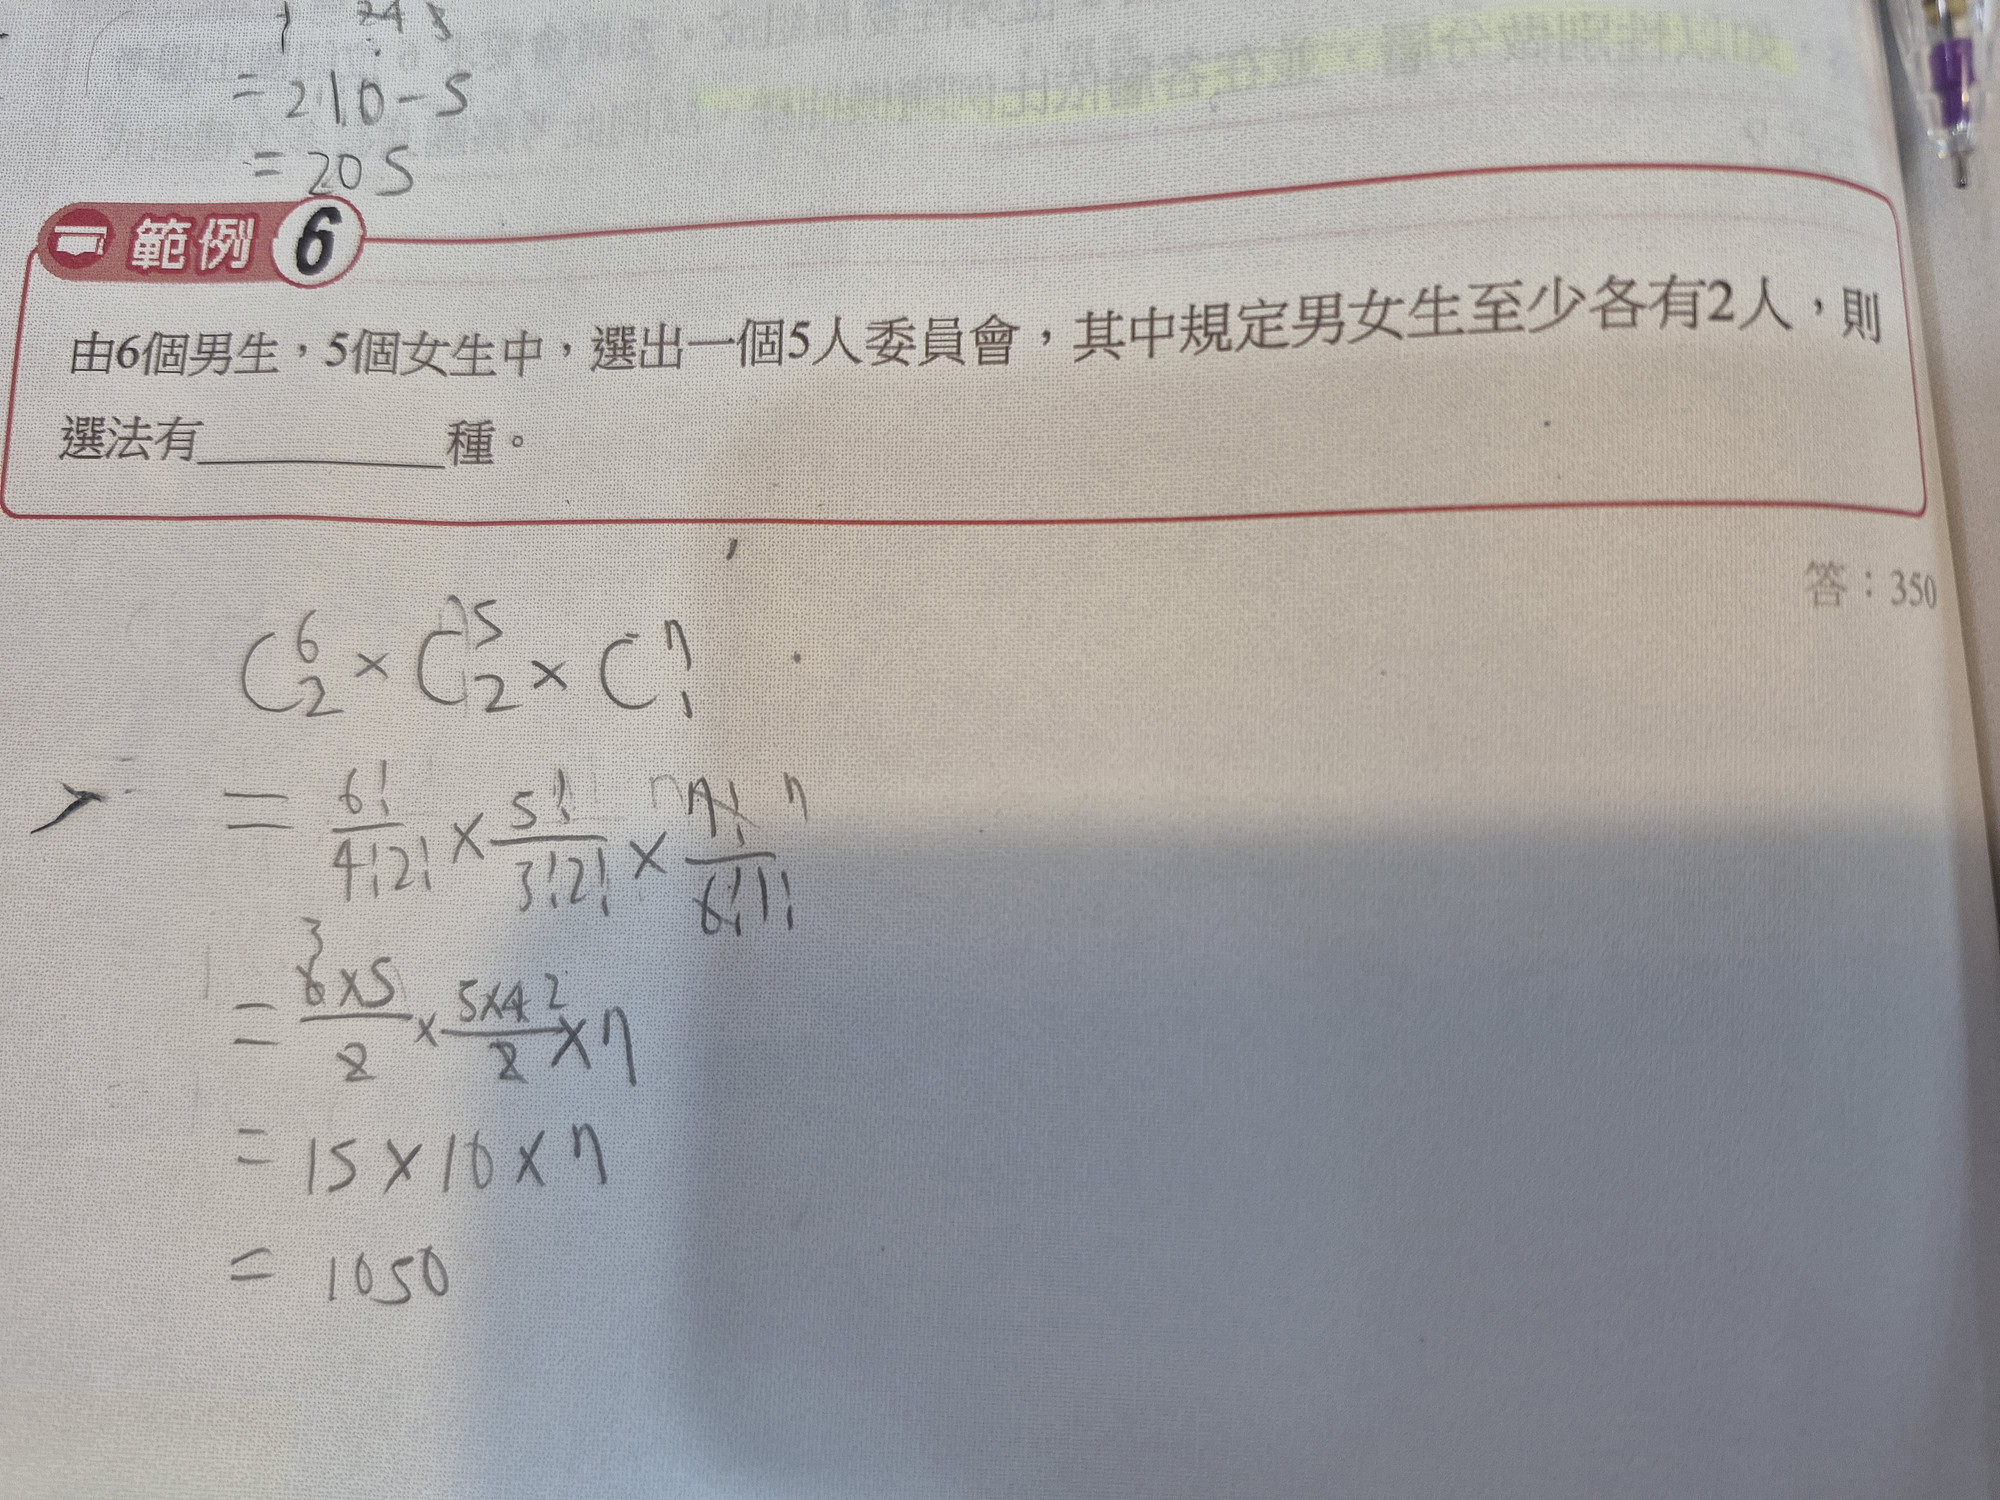 = 210 - 5
= 205
範例 6
由6個男生，5個女生中，選出一個5人委員會，其中規定男女生至少各有2人，則
選法有________種。
答：350
C⁶₂ × C⁵₂ × C⁷₁
= 6!/4!2! × 5!/3!2! × 7!/6!1! 7
= 6×5/2 3 × 5×4/2 2 × 7
= 15 × 10 × 7
= 1050